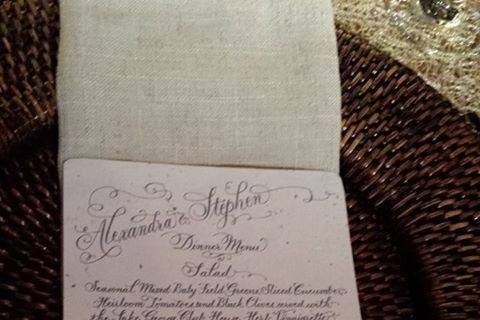 Alexandra & Stephen
Dinner Menu
Salad
Seasonal Mixed Baby Field Greens, Sliced Cucumber,
Heirloom Tomatoes and Black Olives served with
the Lake Club House Herb Vinaigrette